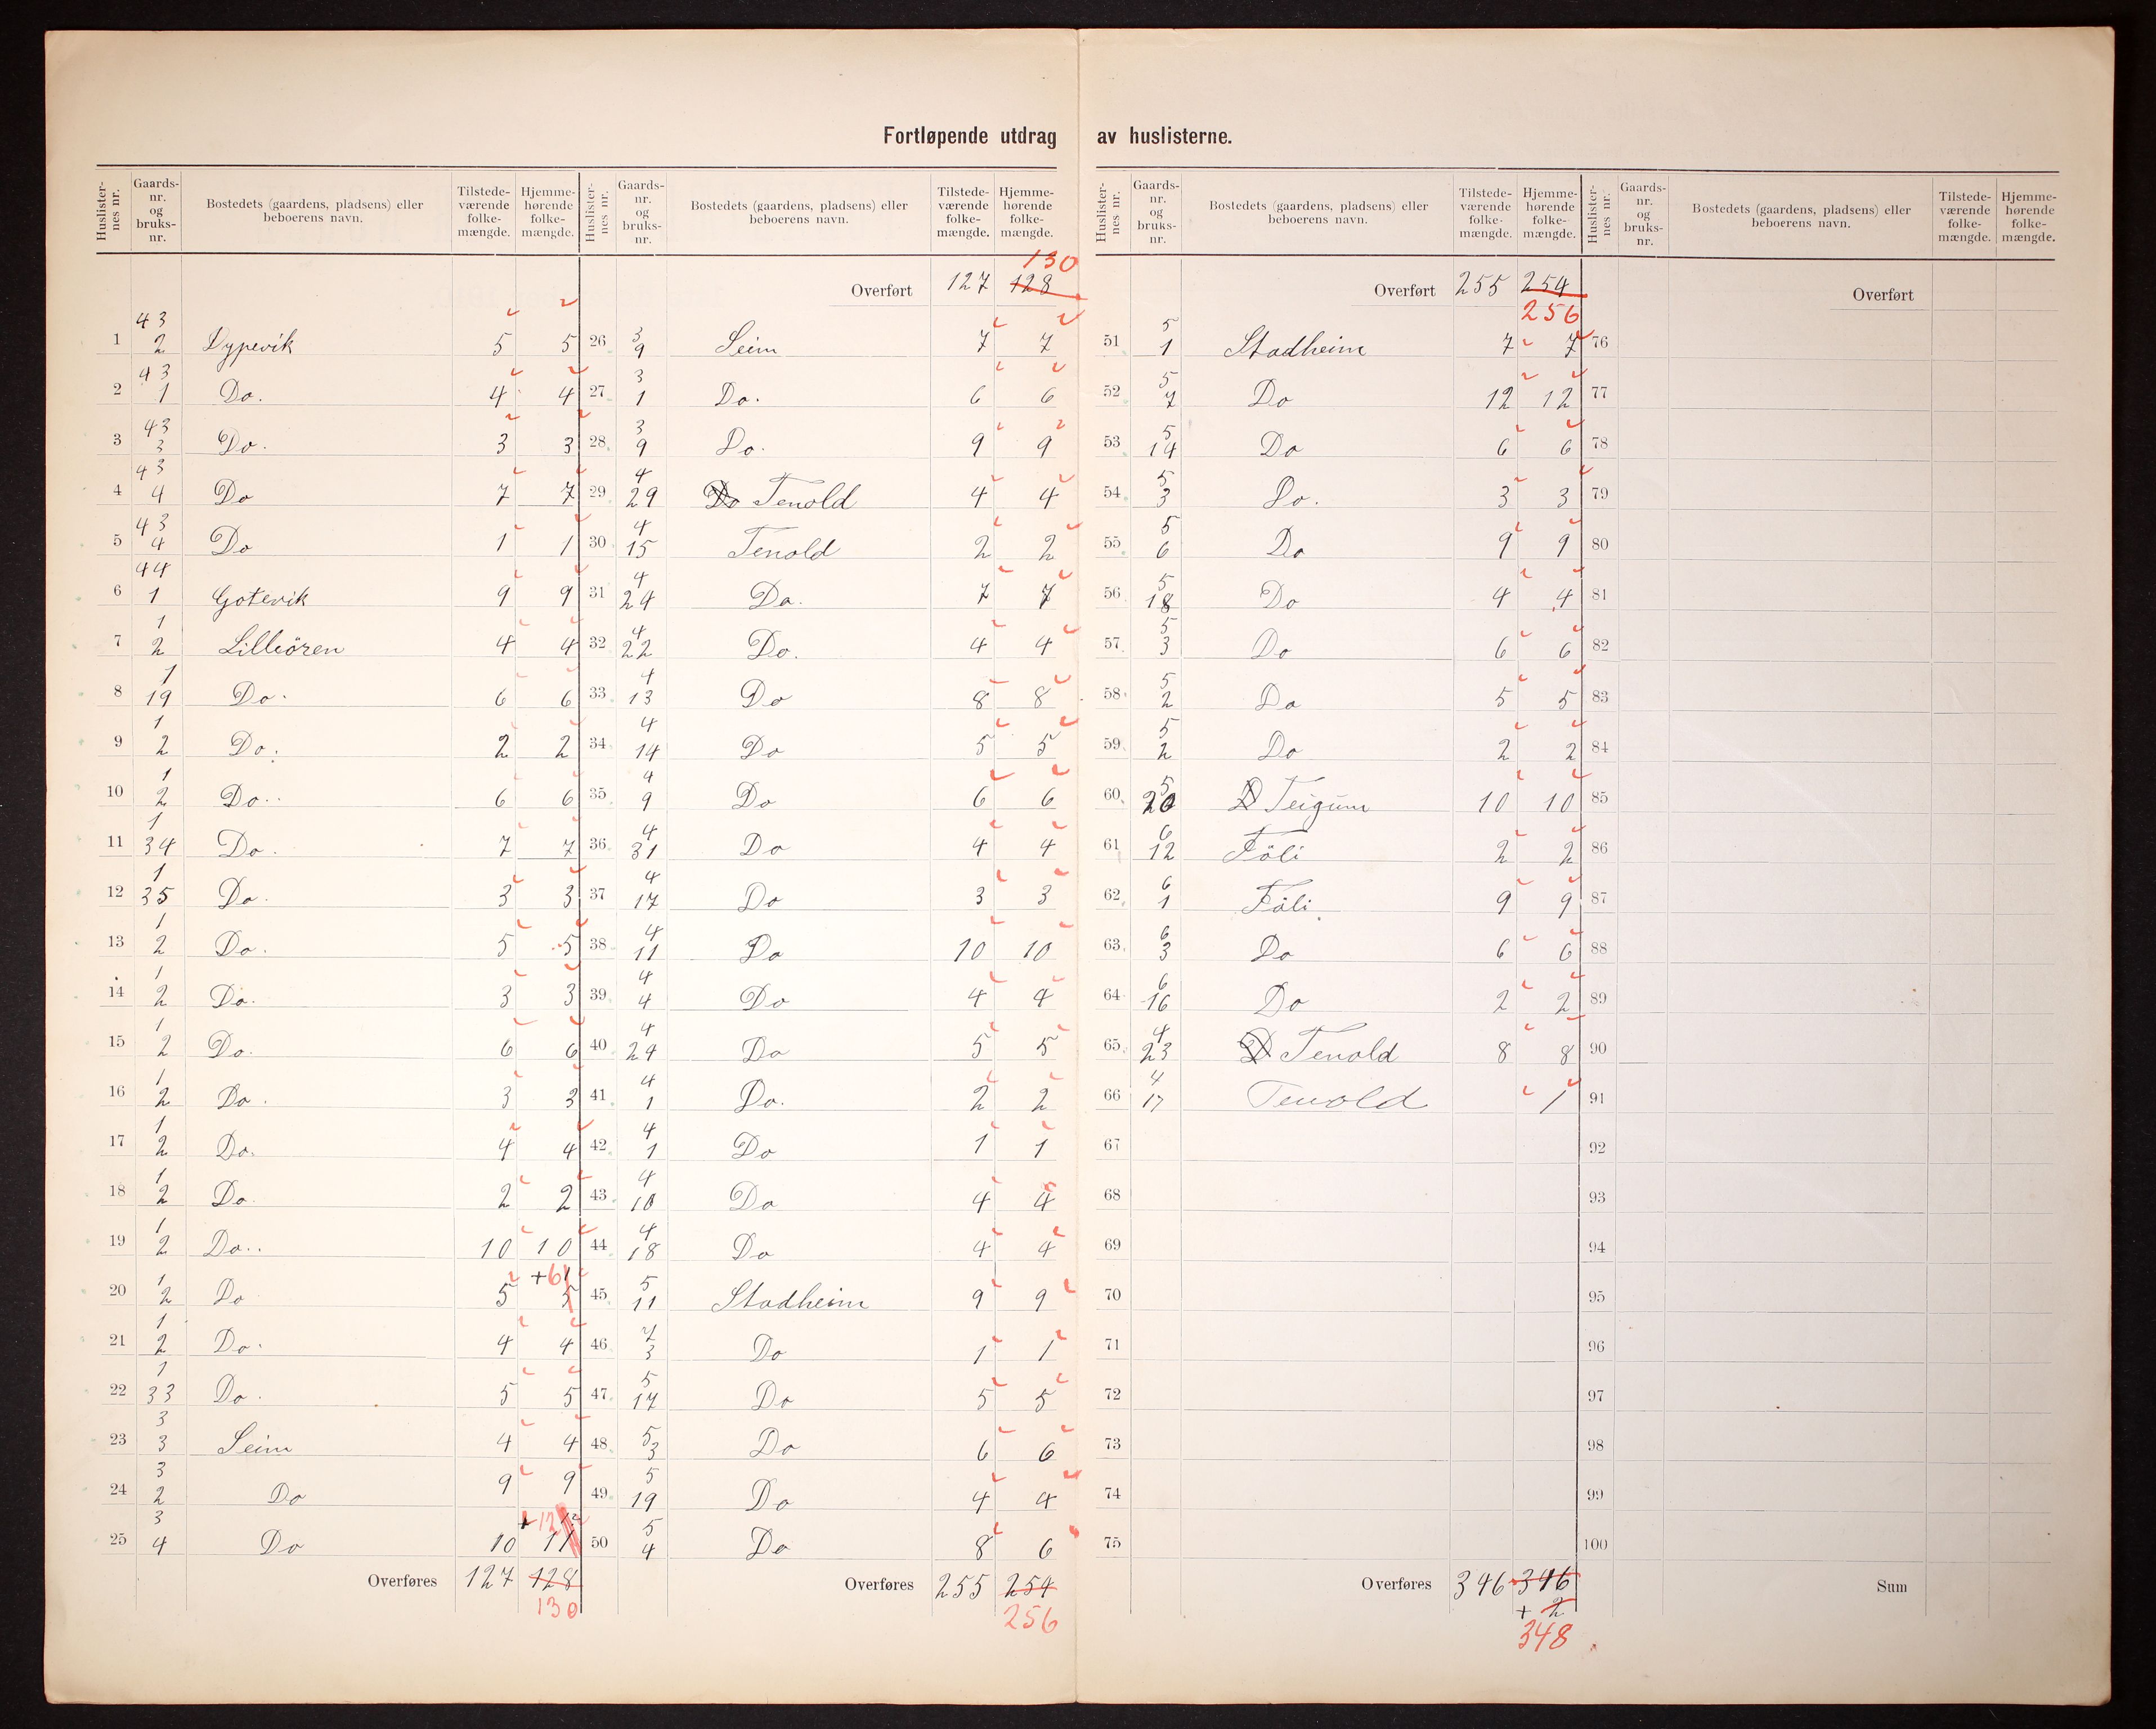 Fortløpende utdrag av huslisterne.
Huslisternes nr. | Gaards-nr. og bruks-nr. | Bostedets (gaardens, pladsens) eller beboerens navn. | Tilstede-værende folke-mængde. | Hjemme-hørende folke-mængde.
1 43 2 Dypevik 5 5
2 43 1 Do. 4 4
3 43 3 Do. 3 3
4 43 4 Do 7 7
5 43 4 Do 1 1
6 44 1 Gotevik 9 9
7 1 2 Lilleören 4 4
8 1 19 Do. 6 6
9 1 2 Do. 2 2
10 1 2 Do. 6 6
11 1 34 Do. 7 7
12 1 35 Do. 3 3
13 1 2 Do. 5 5
14 1 2 Do. 3 3
15 1 2 Do. 6 6
16 1 2 Do. 3 3
17 1 2 Do. 4 4
18 1 2 Do. 2 2
19 1 2 Do.. 10 10
20 1 2 Do 5 5 +6
21 1 2 Do. 4 4
22 1 33 Do. 5 5
23 3 3 Seim 4 4
24 3 2 Do 9 9
25 3 4 Do 10 11 +12
Overføres 127 128
130
Huslisternes nr. | Gaards-nr. og bruks-nr. | Bostedets (gaardens, pladsens) eller beboerens navn. | Tilstede-værende folke-mængde. | Hjemme-hørende folke-mængde.
130
Overført 127 128
26 3 9 Seim 7 7
27 3 1 Do. 6 6
28 3 9 Do. 9 9
29 4 29 Do Tenold 4 4
30 4 15 Tenold 2 2
31 4 24 Do. 7 7
32 4 22 Do. 4 4
33 4 13 Do 8 8
34 4 14 Do 5 5
35 4 9 Do 6 6
36 4 31 Do 4 4
37 4 17 Do 3 3
38 4 11 Do 10 10
39 4 4 Do 4 4
40 4 24 Do 5 5
41 4 1 Do. 2 2
42 4 1 Do 1 1
43 4 10 Do 4 4
44 4 18 Do 4 4
45 5 11 Stadheim 9 9
46 3 Do 1 1
47 5 17 Do 5 5
48 5 3 Do 6 6
49 5 19 Do 4 4
50 5 4 Do 8 6
Overføres 255 254
256
Huslisternes nr. | Gaards-nr. og bruks-nr. | Bostedets (gaardens, pladsens) eller beboerens navn. | Tilstede-værende folke-mængde. | Hjemme-hørende folke-mængde.
Overført 255 254
256
51 5 1 Stadheim 7 7
52 5 7 Do 12 12
53 5 14 Do 6 6
54 5 3 Do. 3 3
55 5 6 Do 9 9
56 5 18 Do 4 4
57 5 3 Do 6 6
58 5 2 Do 5 5
59 5 2 Do 2 2
60 5 20 D Teigum 10 10
61 6 12 Föli 2 2
62 6 1 Föli 9 9
63 6 3 Do 6 6
64 6 16 Do 2 2
65 4 23 D Tenold 8 8
66 4 17 Tenold 1
67
68
69
70
71
72
73
74
75
Overføres 346 346
+ 2
348
Huslisternes nr. | Gaards-nr. og bruks-nr. | Bostedets (gaardens, pladsens) eller beboerens navn. | Tilstede-værende folke-mængde. | Hjemme-hørende folke-mængde.
Overført
76
77
78
79
80
81
82
83
84
85
86
87
88
89
90
91
92
93
94
95
96
97
98
99
100
Sum